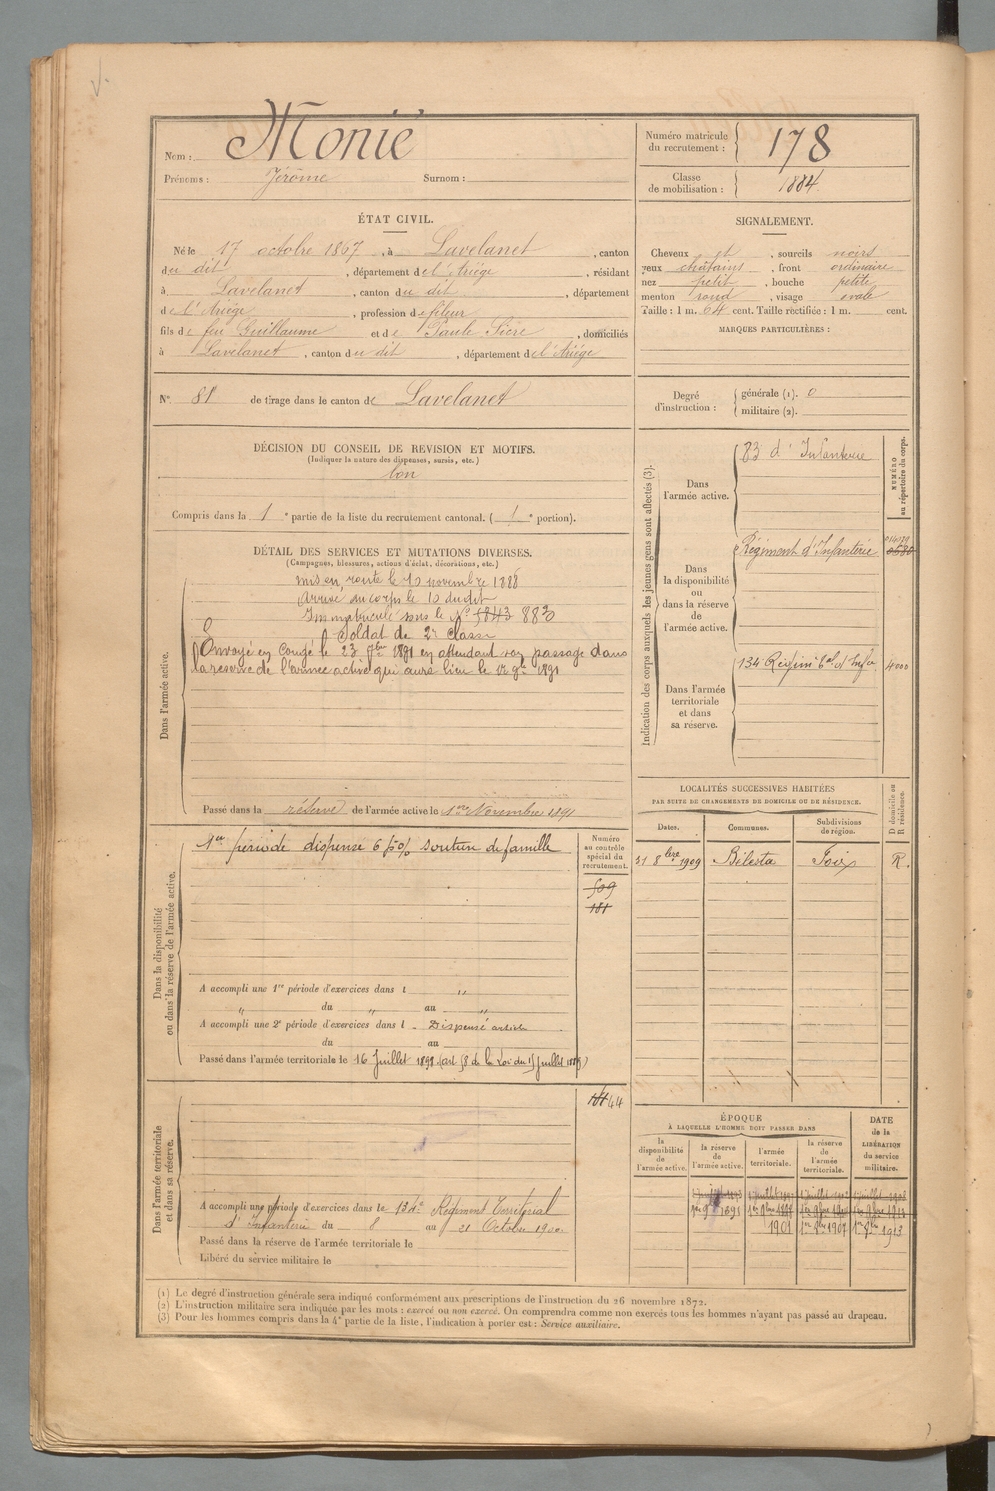 Nom : Monié
Prénoms : Jérôme Surnom :
Numéro matricule du recrutement : 178
Classe de mobilisation : 1884.
ÉTAT CIVIL.
Né le 17 octobre 1867, à Lavelanet, canton
du dit, département de l'Ariége, résidant
à Lavelanet, canton du dit, département
de l'Ariége, profession de fileur
fils de feu Guillaume et de Paule Sicre, domiciliés
à Lavelanet, canton du dit, département de l'Ariége
SIGNALEMENT.
Cheveux et, sourcils noirs
yeux châtains, front ordinaire
nez petit, bouche petite
menton rond, visage ovale
Taille : 1 m. 64 cent. Taille rectifiée : 1 m. cent.
MARQUES PARTICULIÈRES :
N° 81 de tirage dans le canton de Lavelanet
Degré d'instruction :
générale (1). 0
militaire (2).
DÉCISION DU CONSEIL DE REVISION ET MOTIFS.
(Indiquer la nature des dispenses, sursis, etc.)
bon
Compris dans la 1e partie de la liste du recrutement cantonal. (1e portion).
DÉTAIL DES SERVICES ET MUTATIONS DIVERSES.
(Campagnes, blessures, actions d'éclat, décorations, etc.)
Dans l'armée active.
mis en route le 10 novembre 1888
Arrivé au corps le 10 du dit
Immatriculé sous le N° 5843 883
Soldat de 2e classe
Envoyé en congé le 23 7bre 1891 en attendant son passage dans
la réserve de l'armée active qui aura lieu le 1er 9bre 1891
Passé dans la réserve de l'armée active le 1er Novembre 1891
Indication des corps auxquels les jeunes gens sont affectés (3).
NUMÉRO au répertoire du corps.
Dans l'armée active.
83 d'Infanterie
Dans la disponibilité ou dans la réserve de l'armée active.
Régiment d'Infanterie
Dans l'armée territoriale et dans sa réserve.
134 Régim t al d'Infie 4000
LOCALITÉS SUCCESSIVES HABITÉES
PAR SUITE DE CHANGEMENTS DE DOMICILE OU DE RÉSIDENCE.
Dates. Communes. Subdivisions de région. D domicile ou R résidence.
31 8bre 1909 Bélesta Foix R.
Dans la disponibilité ou dans la réserve de l'armée active.
Numéro au contrôle spécial du recrutement.
1ere période dispense 6 p% soutien de famille
509
181
A accompli une 1re période d'exercices dans l "
" du " au "
A accompli une 2e période d'exercices dans l Dispensé article
du au
Passé dans l'armée territoriale le 16 Juillet 1898 (art 58 de la Loi du 15 juillet 1889)
Dans l'armée territoriale et dans sa réserve.
44
A accompli une période d'exercices dans le 134e Régiment Territorial
d'Infanterie du 8 au 21 Octobre 1900
Passé dans la réserve de l'armée territoriale le
Libéré du service militaire le
ÉPOQUE
À LAQUELLE L'HOMME DOIT PASSER DANS
la disponibilité de l'armée active.
la réserve de l'armée active.
l'armée territoriale.
la réserve de l'armée territoriale.
DATE de la LIBÉRATION du service militaire.
1er 9 1891
1901 1er 8bre 1907 1er 8bre 1913
(1) Le degré d'instruction générale sera indiqué conformément aux prescriptions de l'instruction du 26 novembre 1872.
(2) L'instruction militaire sera indiquée par les mots : exercé ou non exercé. On comprendra comme non exercés tous les hommes n'ayant pas passé au drapeau.
(3) Pour les hommes compris dans la 4e partie de la liste, l'indication à porter est : Service auxiliaire.